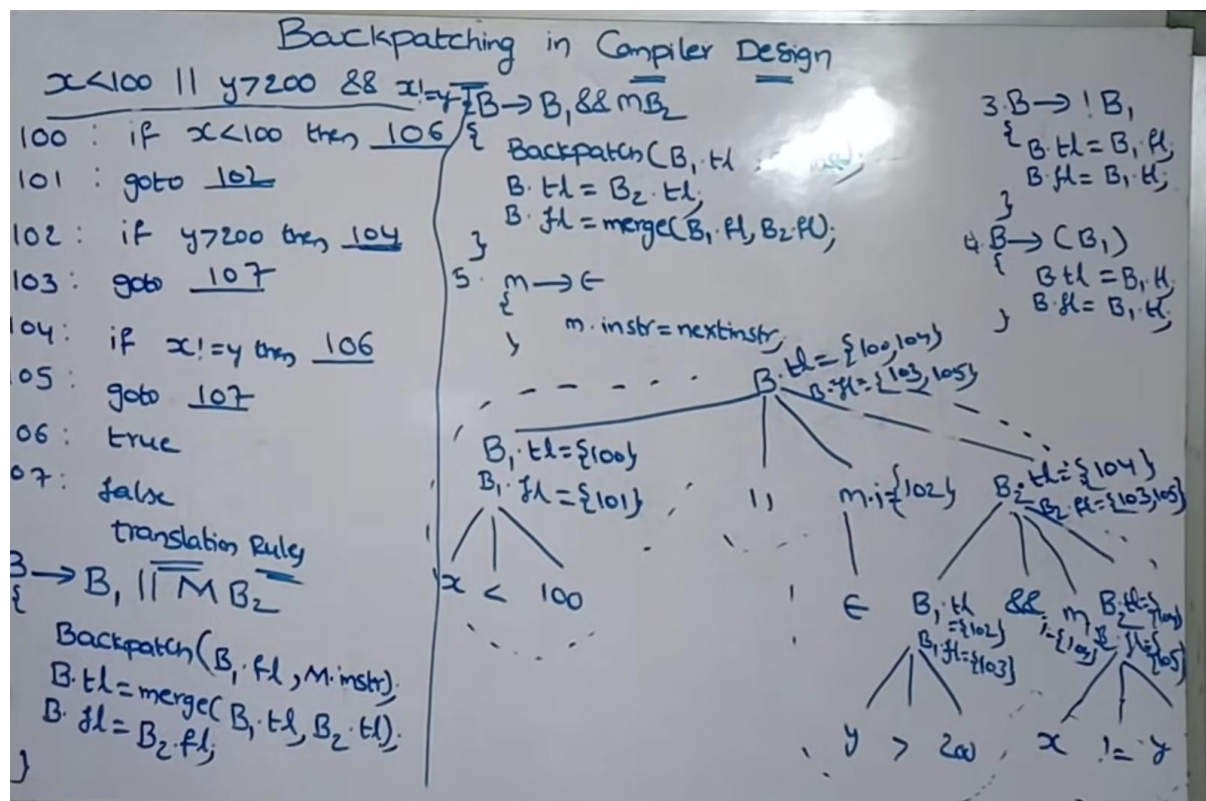 Backpatching in Compiler Design
x<100 || y>200 && x!=y
100 : if x<100 then 106
101 : goto 102
102 : if y>200 then 104
103 : goto 107
104: if x!=y then 106
05 : goto 107
06 : true
07 : false
translation Rules
B→ B₁ || M B₂
{
Backpatch(B₁.fl, M.instr);
B.tl=merge(B₁.tl, B₂.tl);
B.fl=B₂.fl;
}
2 B→ B₁ && m B₂
{
Backpatch(B₁.tl
B.tl = B₂.tl;
B.fl=merge(B₁.fl, B₂.fl);
}
3. B→ ! B₁
{
B.tl=B₁.fl;
B.fl=B₁.tl;
}
4. B→ (B₁)
{
B.tl=B₁.tl;
B.fl=B₁.fl;
}
5. m→ ∈
{
m.instr=nextinstr;
}
B.tl={100,104}
B.fl={103,105}
B₁.tl={100}
B₁.fl={101}
||
m.i={102}
B₂.tl={104}
B₂.fl={103,105}
x < 100
∈
B₁.tl={102}
B₁.fl={103}
&&
m.i={104}
B₂.tl={104}
B₂.fl={105}
y > 200
x != y